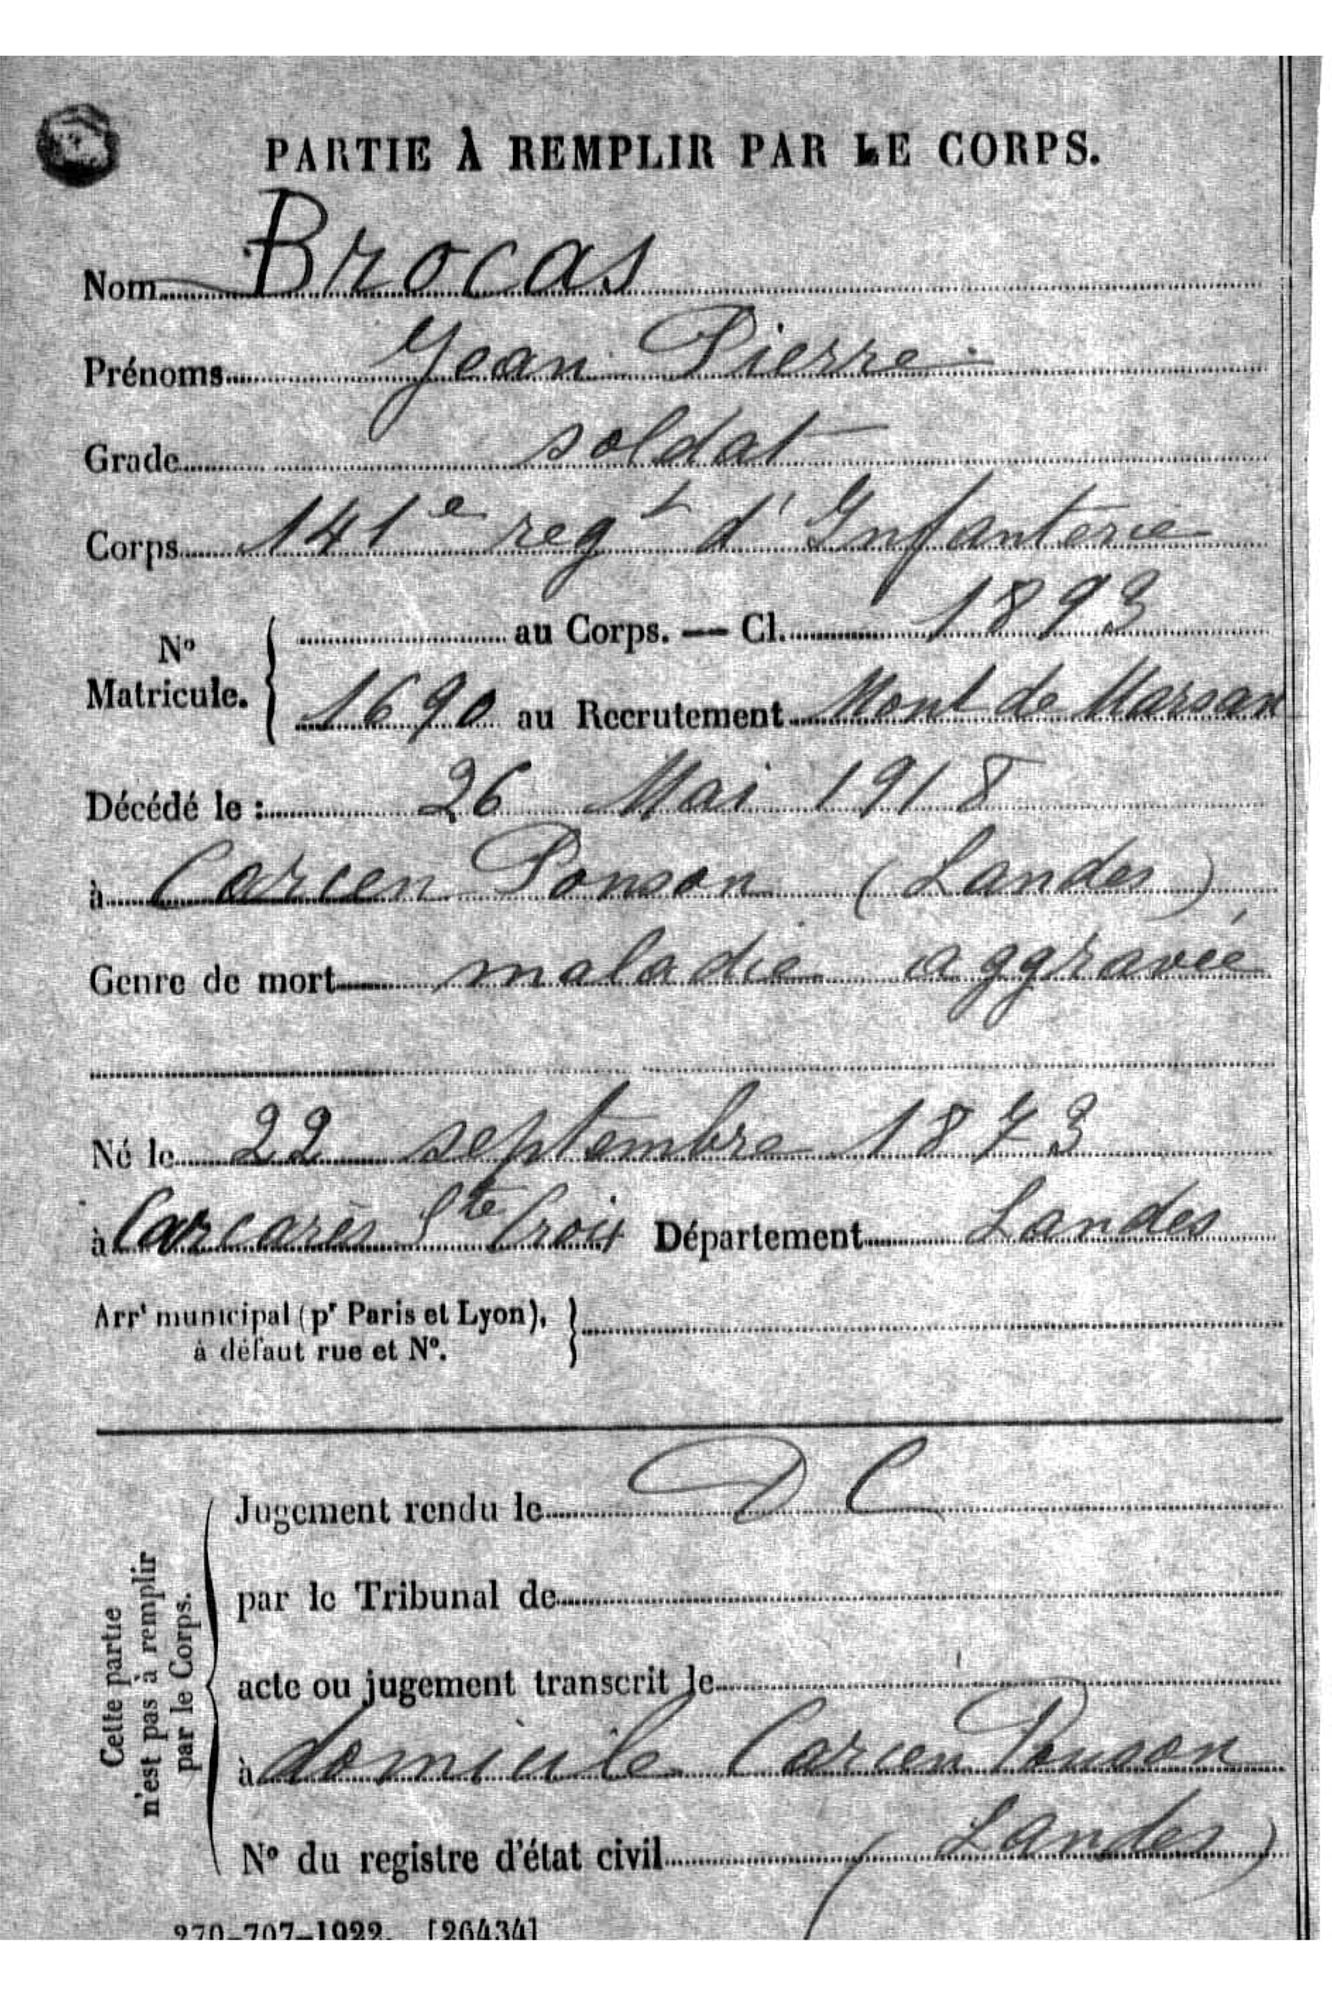 PARTIE À REMPLIR PAR LE CORPS.
Nom Brocas
Prénoms Jean Pierre
Grade soldat
Corps 141e regt d'Infanterie
No Matricule. { au Corps. — Cl. 1893
1690 au Recrutement Mont de Marsan
Décédé le : 26 Mai 1918
à Carcen Ponson (Landes)
Genre de mort maladie aggravée
Né le 22 septembre 1873
à Carcarès Ste Croix Département Landes
Arrt municipal (pr Paris et Lyon), }
à défaut rue et No.
Cette partie
n'est pas à remplir
par le Corps.
Jugement rendu le D C
par le Tribunal de
acte ou jugement transcrit le
à domicile Carcen Ponson
No du registre d'état civil (Landes)
270-707-1922. [26434]